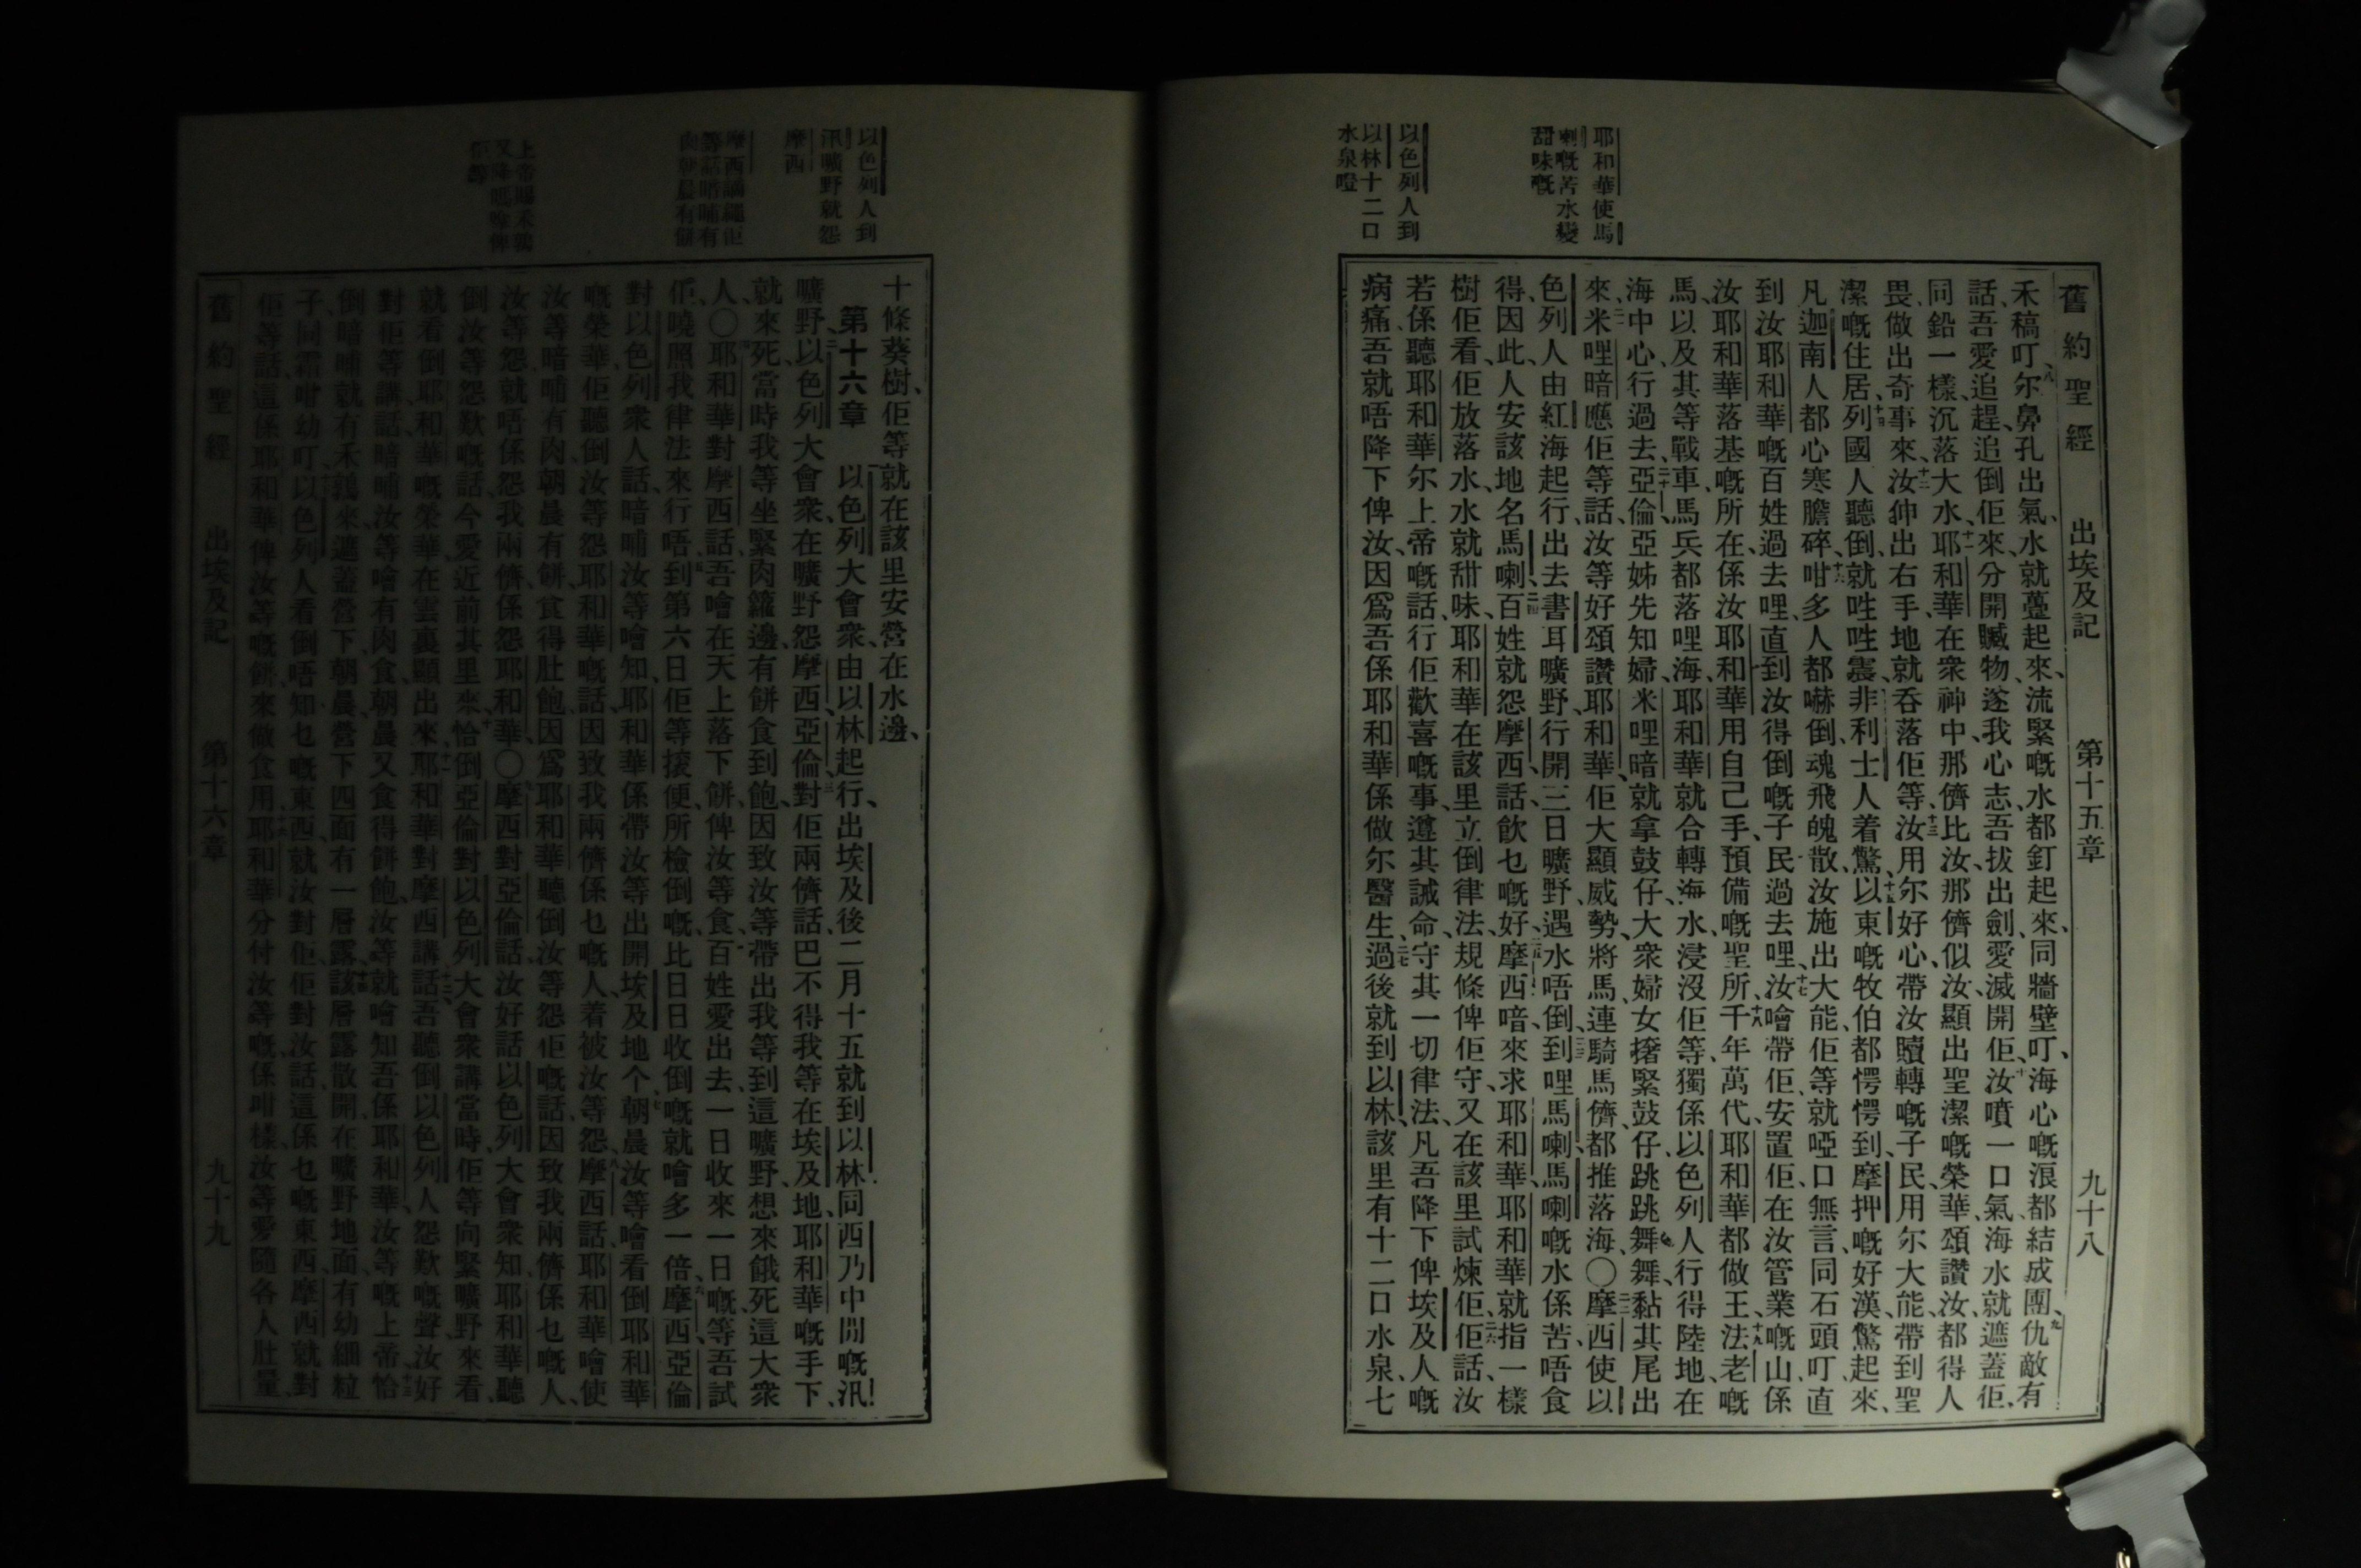 舊約聖經 出埃及記 第十五章 九十八
耶和華使馬
喇嘅苦水變
甜味嘅
以色列人到
以林十二口
水泉嶝
禾稿叮、尔鼻孔出氣、水就躉起來、流緊嘅水都釘起來、同牆壁叮、海心嘅浪都結成團、仇敵有
話、吾愛追趕、追倒佢來、分開贓物、遂我心志、吾拔出劍、愛滅開佢、汝噴一口氣、海水就遮蓋佢、
同鉛一樣沉落大水、耶和華、在衆神中、那儕比汝、那儕似汝、顯出聖潔嘅榮華、頌讚汝、都得人
畏、做出奇事來、汝伸出右手、地就吞落佢等、汝用尔好心、帶汝贖轉嘅子民、用尔大能、帶到聖
潔嘅住居、列國人聽倒、就呭呭震、非利士人着驚、以東嘅牧伯都愕愕到、摩押嘅好漢、驚起來、
凡迦南人都心寒膽碎、咁多人都嚇倒、魂飛魄散、汝施出大能、佢等就啞口無言、同石頭叮、直
到汝耶和華嘅百姓過去哩、直到汝得倒嘅子民過去哩、汝噲帶佢、安置佢、在汝管業嘅山、係
汝耶和華落基嘅所在、係汝耶和華用自己手、預備嘅聖所、千年萬代、耶和華都做王、法老嘅
馬、以及其等戰車、馬兵都落哩海、耶和華就合轉海水浸沒佢等、獨係以色列人行得陸地、在
海中心、行過去、亞倫、亞姊先知婦、米哩暗、就拿鼓仔、大衆婦女撂緊鼓仔、跳跳舞舞、黏其尾出
來、米哩暗應佢等話、汝等好頌讚耶和華、佢大顯威勢、將馬連騎馬儕、都推落海、〇摩西使以
色列人由紅海起行、出去書耳曠野、行開三日曠野、遇水唔倒、到哩馬喇、馬喇嘅水係苦、唔食
得、因此、人安該地名馬喇、百姓就怨摩西話、飲乜嘅好、摩西喑來求耶和華、耶和華就指一樣
樹佢看、佢放落水、水就甜味、耶和華在該里立倒律法、規條俾佢守、又在該里試煉佢、佢話、汝
若係聽耶和華尔上帝嘅話、行佢歡喜嘅事、遵其誡命、守其一切律法、凡吾降下俾埃及人嘅
病痛、吾就唔降下俾汝、因爲吾係耶和華、係做尔醫生、過後就到以林、該里有十二口水泉、七
以色列人到
汛曠野就怨
摩西
十條葵樹、佢等就在該里安營在水邊、
第十六章 以色列大會衆、由以林起行、出埃及後二月十五就到以林同西乃中間嘅汛
曠野、以色列大會衆、在曠野怨摩西、亞倫、對佢兩儕話、巴不得我等在埃及地、耶和華嘅手下、
就來死、當時我等坐緊肉鑼邊、有餅食到飽、因致汝等帶出我等到這曠野、想來餓死這大衆
人、〇耶和華對摩西話、吾噲在天上落下餅、俾汝等食、百姓愛出去、一日收來一日嘅、等吾試
佢、曉照我律法來行唔、到第六日、佢等挼便所檢倒嘅、比日日收倒嘅、就噲多一倍、摩西、亞倫
對以色列衆人話、暗晡汝等噲知、耶和華係帶汝等出開埃及地个、朝晨汝等噲看倒耶和華
嘅榮華、佢聽倒汝等怨耶和華嘅話、因致我兩儕係乜嘅人、着被汝等怨、摩西話、耶和華噲使
汝等暗晡有肉、朝晨有餅、食得肚飽、因爲耶和華聽倒汝等怨佢嘅話、因致我兩儕係乜嘅人、
汝等怨、就唔係怨我兩儕、係怨耶和華、〇摩西對亞倫話、汝好話以色列大會衆知、耶和華聽
倒汝等怨歎嘅話、今愛近前其里來、恰倒亞倫對以色列大會衆講當時、佢等向緊曠野來看、
就看倒耶和華嘅榮華、在雲裏顯出來、耶和華對摩西講話、吾聽倒以色列人怨歎嘅聲、汝好
對佢等講話、暗晡汝等噲有肉食、朝晨又食得餅飽、汝等就噲知吾係耶和華、汝等嘅上帝、恰
倒暗晡就有禾鶉來、遮蓋營下、朝晨營下四面有一層露、該層露散開、在曠野地面、有幼細粒
子、同霜咁幼叮、以色列人看倒、唔知乜嘅東西、就汝對佢、佢對汝話、這係乜嘅東西、摩西就對
佢等話、這係耶和華俾汝等嘅餅、來做食用、耶和華分付汝等嘅、係咁樣、汝等愛隨各人肚量、
舊約聖經 出埃及記 第十六章 九十九